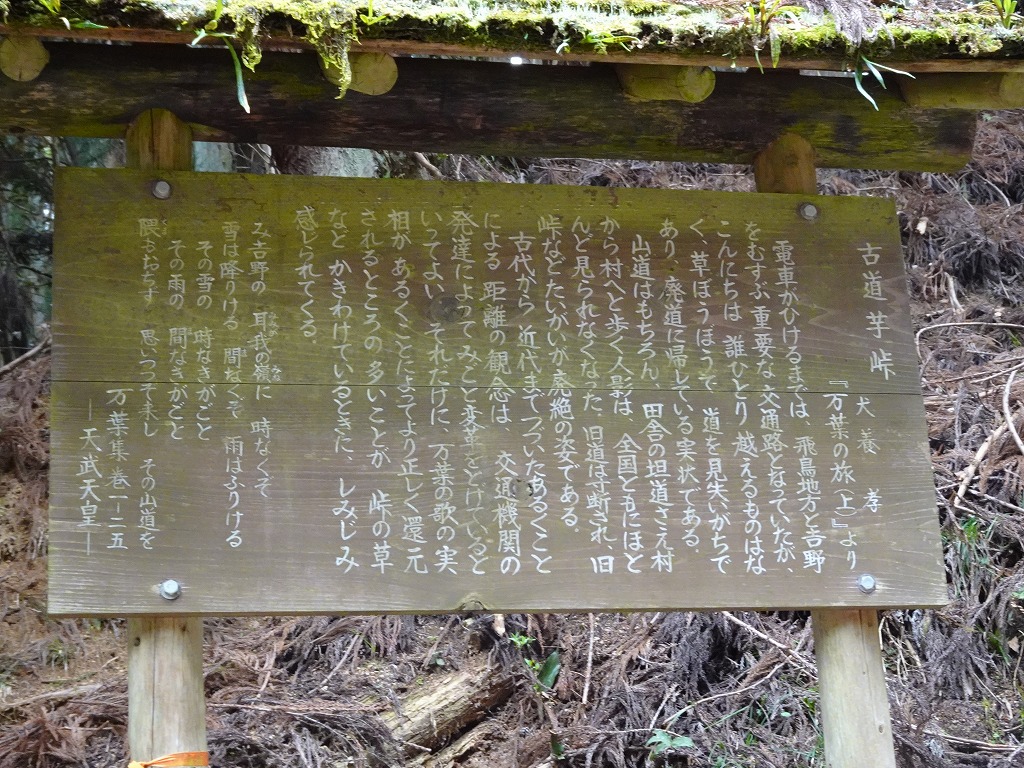 古道芋峠
犬養 孝
『万葉の旅(上)』より
電車がひけるまでは、飛鳥地方と吉野
をむすぶ重要な交通路となっていたが、
こんにちは、誰ひとり越えるものはな
く、草ぼうぼうで、道を見失いがちで
あり、廃道に帰している実状である。
山道はもちろん、田舎の坦道さえ村
から村へと歩く人影は、全国ともにほと
んど見られなくなった。旧道は寸断され、旧
峠などたいがいが廃絶の姿である。
古代から近代までつづいたあるくこと
による距離の観念は、交通機関の
発達によってみごと変革をとげていると
いってよい。それだけに、万葉の歌の実
相があるくことによってより正しく還元
されるところの多いことが、峠の草
などかきわけているときに、しみじみ
感じられてくる。
み吉野の 耳我の嶺に 時なくぞ
雪は降りける 間なくぞ 雨はふりける
その雪の 時なきがごと
その雨の 間なきがごと
隈もおちず 思いつつぞ来し その山道を
万葉集巻一―二五
―天武天皇―